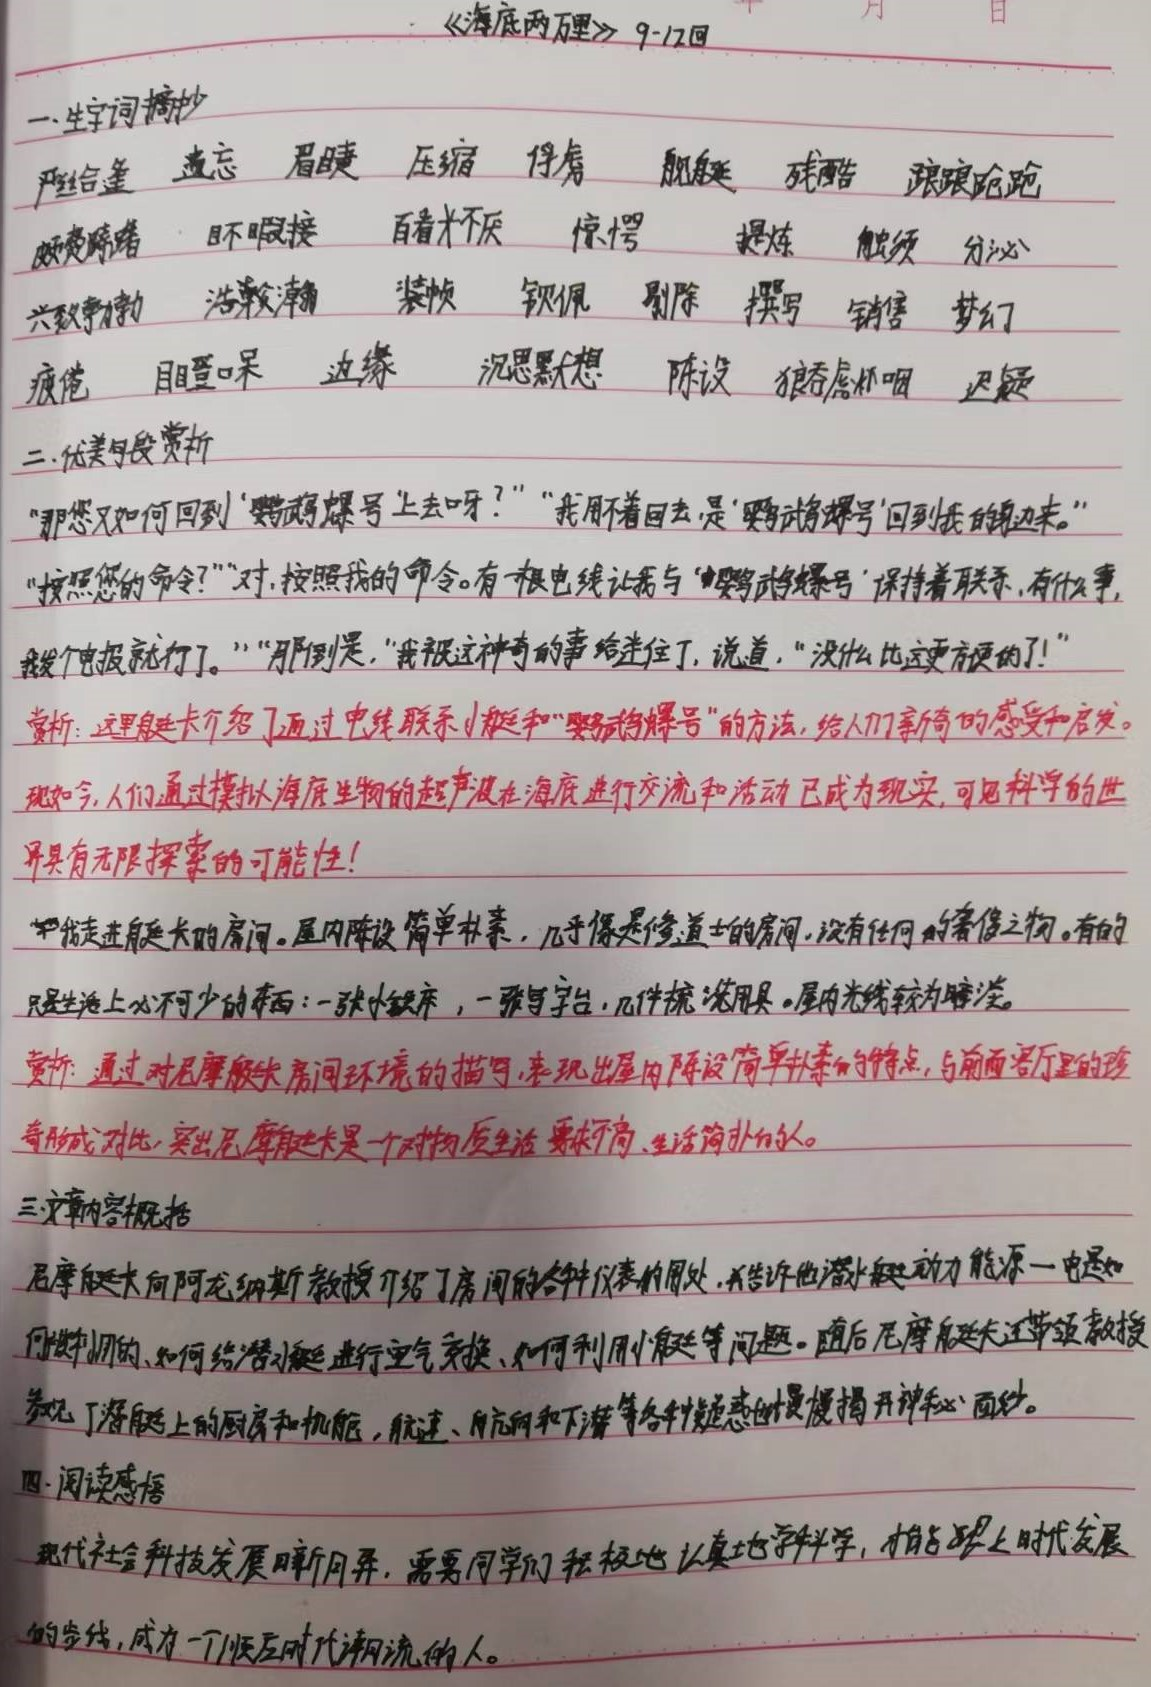 年 月 日
《海底两万里》9-12回
一.生字词摘抄
严丝合缝 遗忘 眉睫 压缩 俘虏 舰艇 残酷 踉踉跄跄
颇费踌躇 目不暇接 百看不厌 惊愕 提炼 触须 分泌
兴致勃勃 浩瀚 装帧 钦佩 剔除 撰写 销售 梦幻
疲倦 目瞪口呆 边缘 沉思默想 陈设 狼吞虎咽 迟疑
二.优美句段赏析
“那您又如何回到‘鹦鹉螺号’上去呀？”“我用不着回去,是‘鹦鹉螺号’回到我的身边来。”
“按照您的命令？”“对,按照我的命令。有一根电线让我与‘鹦鹉螺号’保持着联系,有什么事,
我发个电报就行了。”“那倒是,”我被这神奇的事给迷住了,说道,“没什么比这更方便的了!”
赏析：这里艇长介绍了通过电线联系小艇和“鹦鹉螺号”的方法,给人们新奇的感受和启发。
现如今,人们通过模拟海底生物的超声波在海底进行交流和活动已成为现实,可见科学的世
界具有无限探索的可能性!
我走进艇长的房间。屋内陈设简单朴素,几乎像是修道士的房间,没有任何的奢侈之物。有的
只是生活上必不可少的东西：一张小铁床,一张写字台,几件梳洗用具。屋内光线较为暗淡。
赏析：通过对尼摩艇长房间环境的描写,表现出屋内陈设简单朴素的特点,与前面客厅里的珍
奇形成对比,突出尼摩艇长是一个对物质生活要求不高、生活简朴的人。
三.文章内容概括
尼摩艇长向阿龙纳斯教授介绍了房间的各种仪表的用处,并告诉他潜水艇动力能源一电是如
何利用的、如何给潜水艇进行空气交换、如何利用小艇等问题。随后尼摩艇长还带领教授
参观了潜艇上的厨房和机舱,航速、航向和下潜等各种疑惑也慢慢揭开神秘面纱。
四.阅读感悟
现代社会科技发展日新月异,需要同学们积极地认真地学科学,才能跟上时代发展
的步伐,成为一个顺应时代潮流的人。